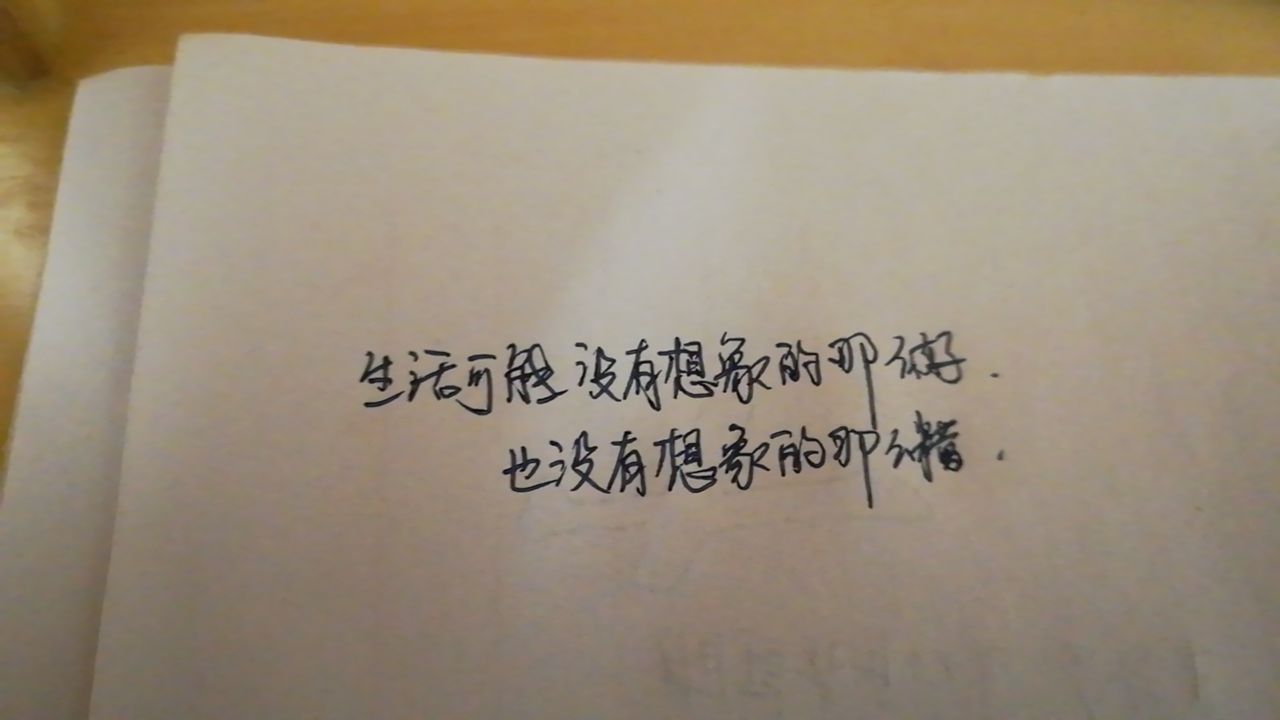 生活可能没有想象的那么好.
也没有想象的那么糟.